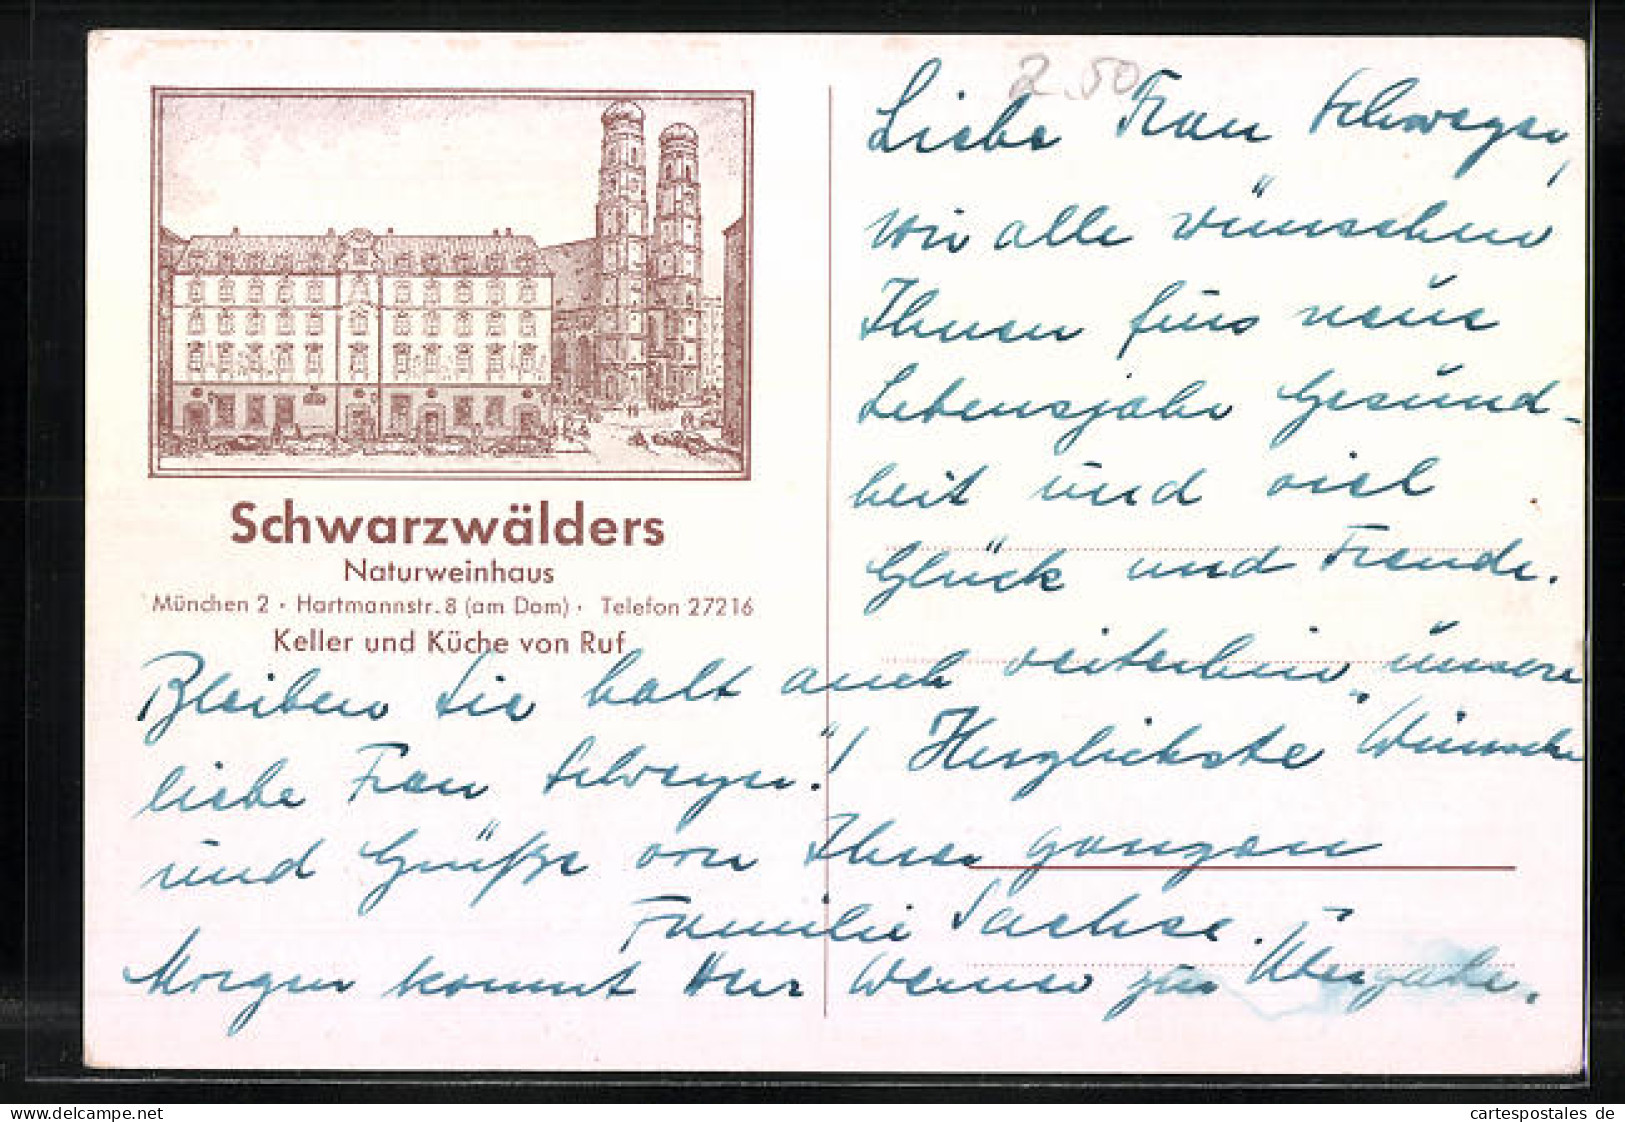 2.50
Liebe Frau Schweyer,
wir alle wünschen
Ihnen fürs neue
Lebensjahr Gesund-
heit und viel
Glück und Freude.
Schwarzwälders
Naturweinhaus
München 2 · Hartmannstr. 8 (am Dom) · Telefon 27216
Keller und Küche von Ruf
Bleiben Sie halt auch weiterhin "unsere
liebe Frau Schweyer"! Herzlichste Wünsche
und Grüße von Ihrer ganzen
Familie Sachse.
Morgen kommt Herr Werner zur Übergabe.
cartespostales de